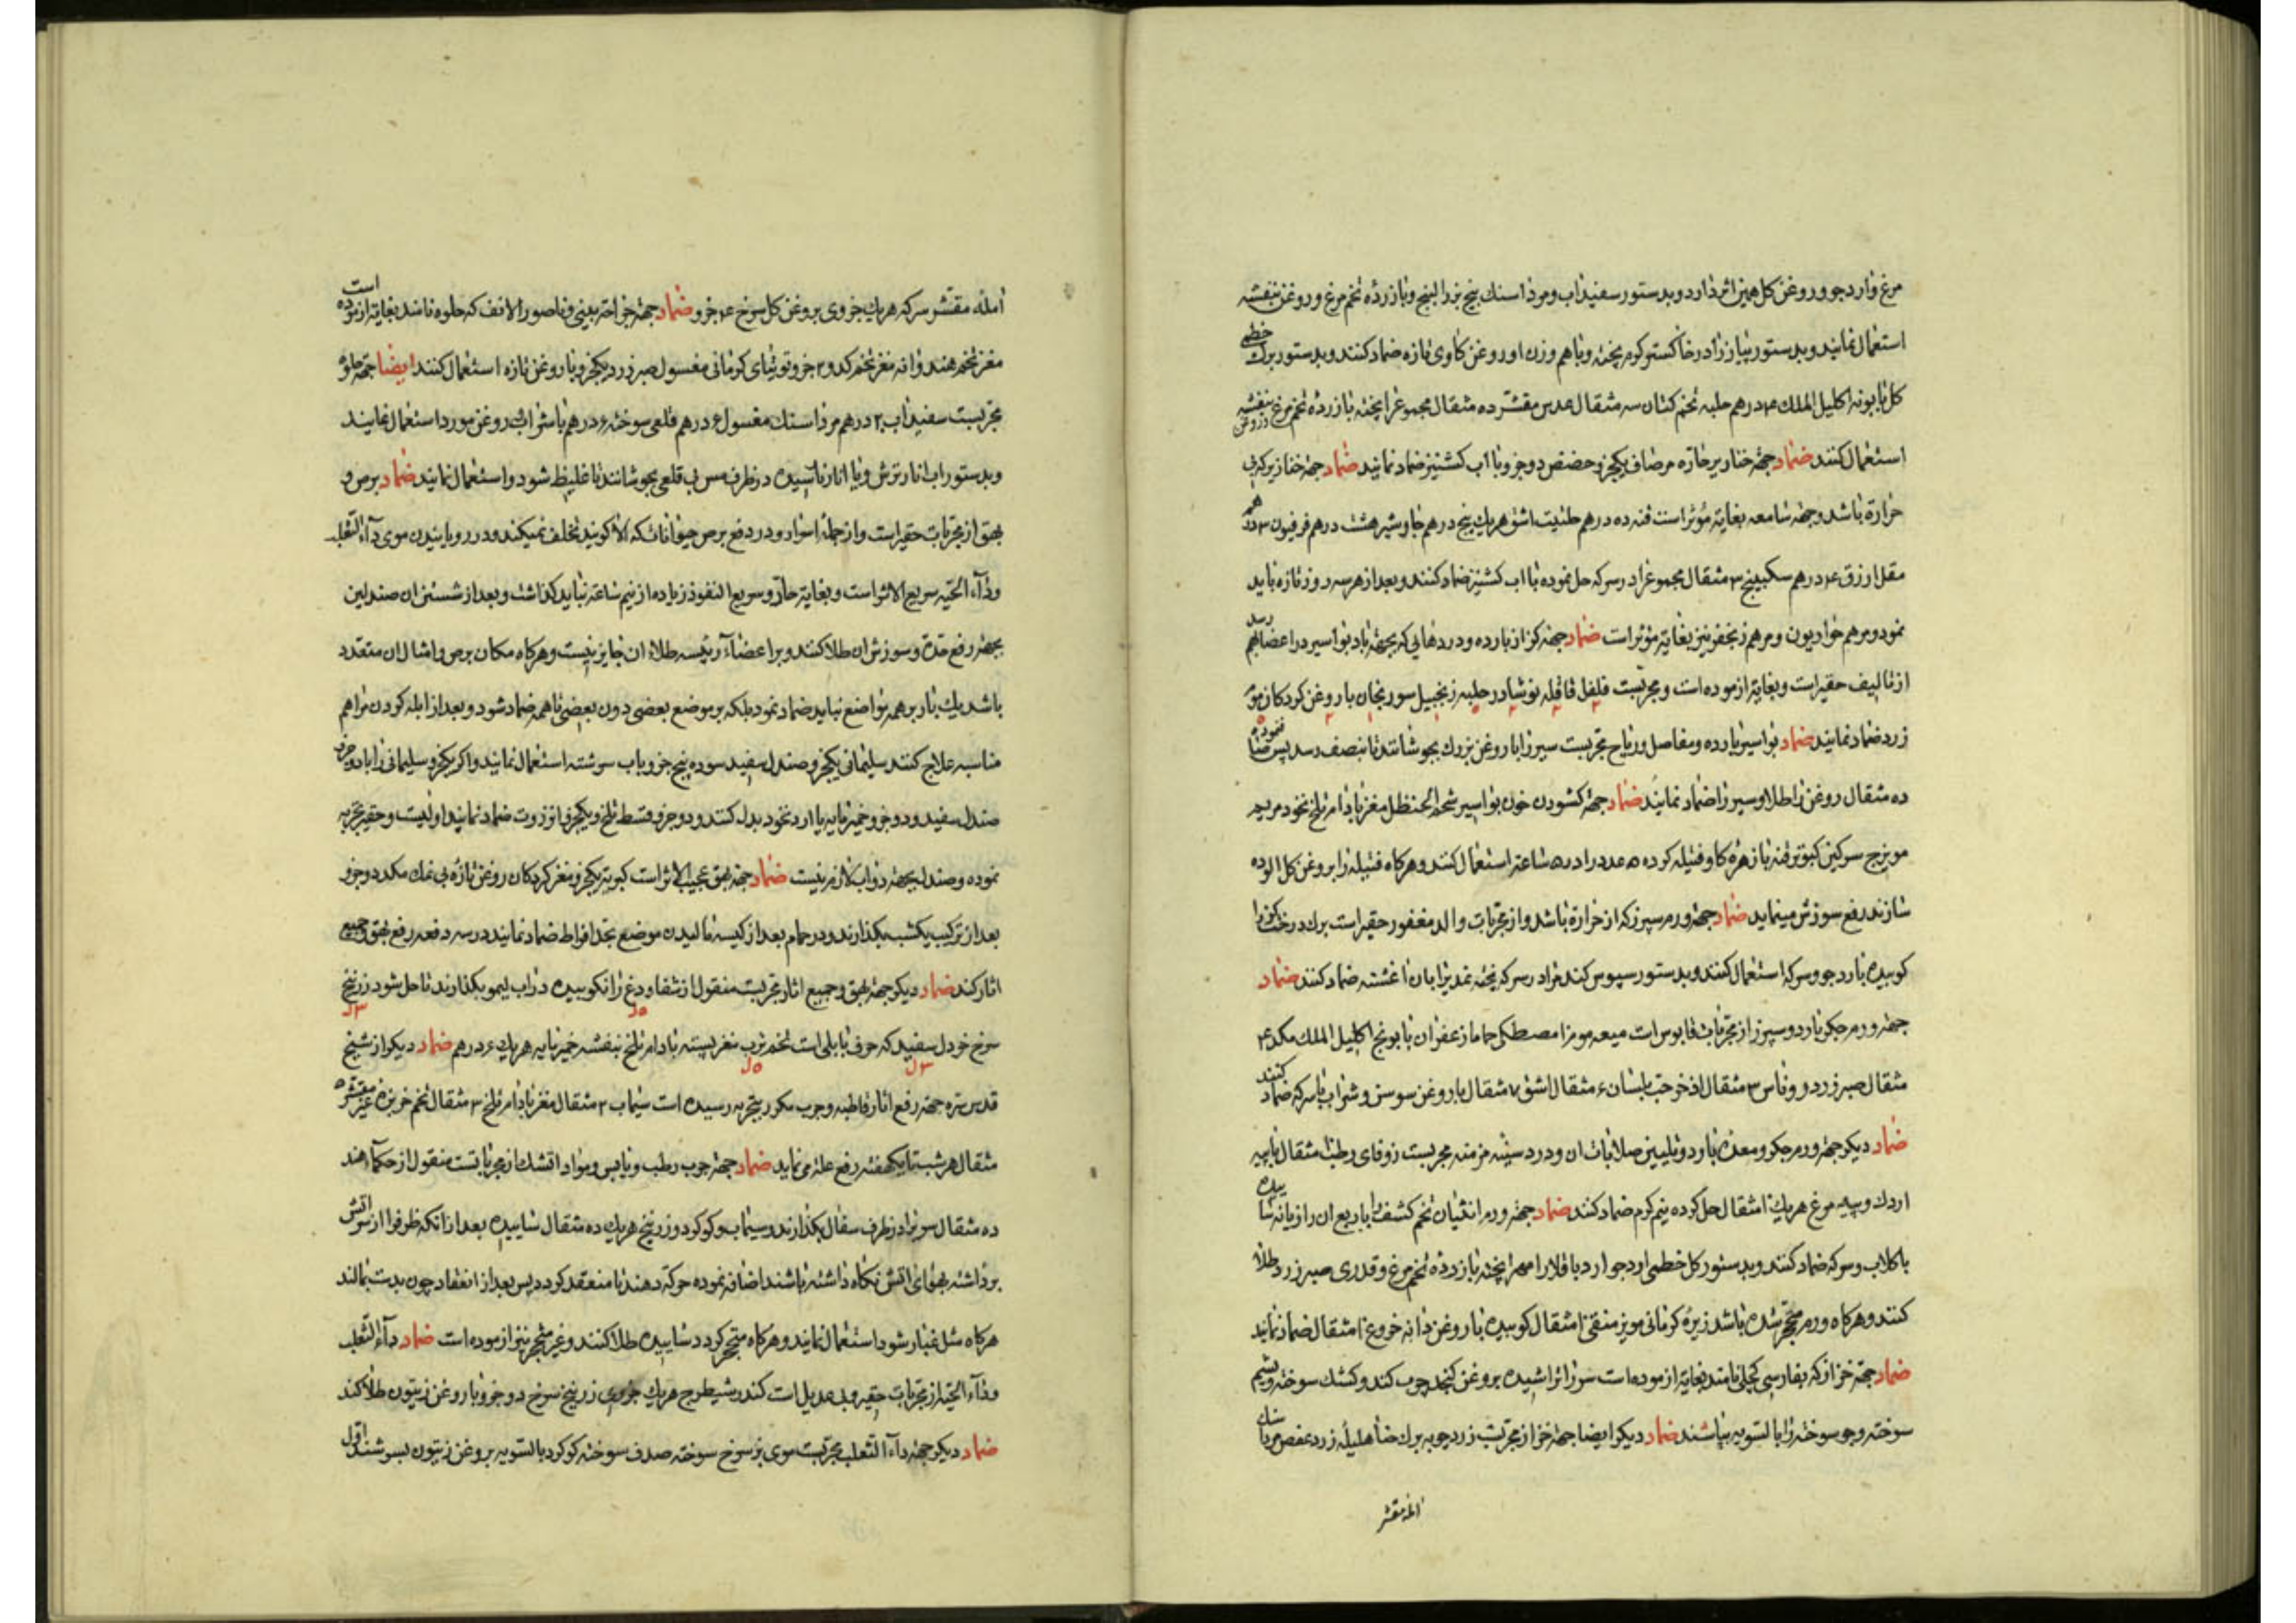 مرغ وارد جو و روغن کل همین اثر دارد و بدستور سفیداب و مرداسنك بنج بزرالبنج و با زرده تخم مرغ و روغن بنفشه
استعمال نمایند و بدستور پیاز را در خاکستر کرم پخته و با هم وزن او روغن کاوی تازه ضماد کنند و بدستور برك خطمی
کل بابونه اکلیل الملك ۴ درهم حلبه تخم کتان سه مثقال عدس مقشر ده مثقال مجموع را پخته با زرده تخم مرغ و روغن بنفشه
استعمال کنند ضماد جهة خنازیر حاره مر صاف یکجزو حضض دو جزو با اب کشنیز ضماد نمایند ضماد جهة خنازیر که بی
حرارة باشد و جهة سامعه بغایة مؤثر است قنه ده درهم حلتیت اشق هریك پنج درهم جاوشیر هشت درهم فرفیون ۳ درهم
مقل ازرق ۴ درهم سکبینج ۳ مثقال مجموع را در سرکه حل نموده با اب کشنیز ضماد کنند و بعد از هر سه روز تازه باید
نمود و مرهم حواریون و مرهم زنجفر نیز بغایة مؤثر است ضماد جهة کزاز بارده و دردهایی که بجهة باد بواسیر در اعضا بهم رسد
از تالیف حقیر است و بغایة ازموده است و مجربست فلفل قاقله نوشادر حلبه زنجبیل سورنجان با روغن کردکان
زرد ضماد نمایند ضماد بواسیر بارده و مفاصل و ریاح مجربست سیر را با روغن بزرك بجوشانند تا بنصف رسد پس صاف نموده
ده مثقال روغن را طلا و سیر را ضماد نمایند ضماد جهة کشودن خون بواسیر شحم الحنظل مغز بادام تلخ نخود مریم
مویزج سرکین کبوتر قنه با زهره کاو فتیله کرده ۵ عدد را در ۵ ساعة استعمال کنند و هرکاه فتیله را بروغن کل الوده
سازند رفع سوزش مینماید ضماد جهة ورم سپرز که از حرارة باشد و از مجربات والد مغفور حقیر است برك درخت کز را
کوبیده با ارد جو و سرکه استعمال کنند و بدستور سپوس کندم را در سرکه پخته نمد را بان اغشته ضماد کنند ضماد
جهة ورم جکر بارد و سپرز از مجربات قابوس است میعه مو مر مصطکی حماما زعفران بابونج اکلیل الملك مکد ۴
مثقال صبر زرد روناس ۳ مثقال اذخر حب بلسان ۶ مثقال اشق ۷ مثقال با روغن سوسن و شراب یا سرکه ضماد کنند
ضماد دیکر جهة ورم جکر و معده بارد و تلیین صلابات ان و درد سینه مزمنه مجربست زوفای رطب ۱ مثقال با پیه
اردك و پیه مرغ هریك ۱ مثقال حل کرده نیم کرم ضماد کنند ضماد جهة ورم انثیان تخم کشف را با ربع ان رازیانه سابیده
با کلاب و سرکه ضماد کنند و بدستور کل خطمی ارد جو ارد باقلا را مهرا پخته با زرده تخم مرغ و قدری صبر زرد طلا
کنند و هرکاه ورم متحجر شده باشد زیره کرمانی مویز منقی ۱ مثقال کوبیده با روغن دانه خروع ۱ مثقال ضماد نمایند
ضماد جهة خزاز که بفارسی کچلی نامند بغایة ازموده است سر را تراشیده بروغن کنجد چرب کنند و کشك سوخته و پشم
سوخته و جو سوخته را بالسویه بپاشند ضماد دیکر ایضا جهة خزاز مجربست زردچوبه برك حنا هلیله زرد عفص
امله مقشر
امله مقشر سرکه هریك جزوی بروغن کل سرخ ۴ جزو ضماد جهة جراحة بینی و ناصور الانف که حلوه نامند بغایة ازموده است
مغز تخم هندوانه مغز تخم کدو ۲ جزو توتیای کرمانی مغسول صبر زرد یکجزو با روغن تازه استعمال کنند ایضا جهة حلوه
مجربست سفیداب ۲ درهم مرداسنك مغسول ۶ درهم قلعی سوخته ۶ درهم با شراب و روغن مورد استعمال نمایند
و بدستور اب انار ترش و یا انار تا سیده در ظرف مس بی قلعی بجوشانند تا غلیظ شود و استعمال نمایند ضماد برص و
بهق از مجربات حقیر است و از جمله اسرار و در دفع برص حیوانات که الا کویند تخلف نمیکند و در رویانیدن موی داء الثعلب
و داء الحیه سریع الاثر است و بغایة حار و سریع النفوذ زیاده از نیم ساعة نباید کذاشت و بعد از شستن ان صندلین
بجهة رفع حدة و سوزش ان طلا کنند و بر اعضاء رئیسه طلاء ان جایز نیست و هرکاه مکان برص و امثال ان متعدد
باشد یك بار بر همه مواضع نباید ضماد نمود بلکه بر موضع بعضی دون بعضی تا همه ضماد شود و بعد از ابله کردن مراهم
مناسبه علاج کنند سلیمانی یکجزو صندل سفید سوده پنج جزو باب سرشته استعمال نمایند و اکر یکجزو سلیمانی را با دو جزو
صندل سفید و دو جزو خمیرمایه یا ارد نخود بدل کنند و دو جزو قسط تلخ و یکجزو انزروت ضماد نمایند اولیست و حقیر تجربه
نموده و صندل بجهة دواب لازم نیست ضماد جهة بهق عجیب الاثر است کبریت یکجزو مغز کردکان روغن تازه بی نمك مکد دو جزو
بعد از ترکیب یکشب بکذارند و در حمام بعد از کیسه مالیدن موضع بحد افراط ضماد نمایند در سه دفعه رفع بهق و جمیع
اثار کند ضماد دیکر جهة بهق و جمیع اثار مجربست منقول از شفا ودع را نکوبیده در اب لیمو بکذارند تا حل شود زرنیخ
سرخ خردل سفید که حرف بابلی است تخم ترب مغز پسته بادام تلخ بنفشه خمیرمایه هریك ۶ درهم ضماد دیکر از شیخ
قدس سره جهة رفع اثار قاطبه و جرب مکرر بتجربه رسیده است سیماب ۲ مثقال مغز بادام تلخ ۳ مثقال تخم خربزه غیر مقشر ۵
مثقال هر شب تا یکهفته رفع علة می نماید ضماد جهة جرب رطب و یابس و مواد اتشك از مجرباتست منقول از حکماء هند
ده مثقال سرب را در ظرف سفال بکذارند و سیماب و کوکرد و زرنیخ هریك ده مثقال سابیده بعد از انکه ظرف را از سر اتش
برداشته بهوای اتش نکاه داشته باشند اضافه نموده حرکه دهند تا منعقد کردد پس بعد از انعقاد چون بدست بمالند
هرکاه مثل غبار شود استعمال نمایند و هرکاه متحجر کردد سابیده طلا کنند و غیر متحجر نیز ازموده است ضماد داء الثعلب
و داء الحیه از مجربات حقیر و بی عدیل است کندر شیطرج هریك جزوی زرنیخ سرخ دو جزو با روغن زیتون طلا کنند
ضماد دیکر جهة داء الثعلب مجربست موی بز سرخ سوخته صدف سوخته کوکرد بالسویه بروغن زیتون بسرشند اول